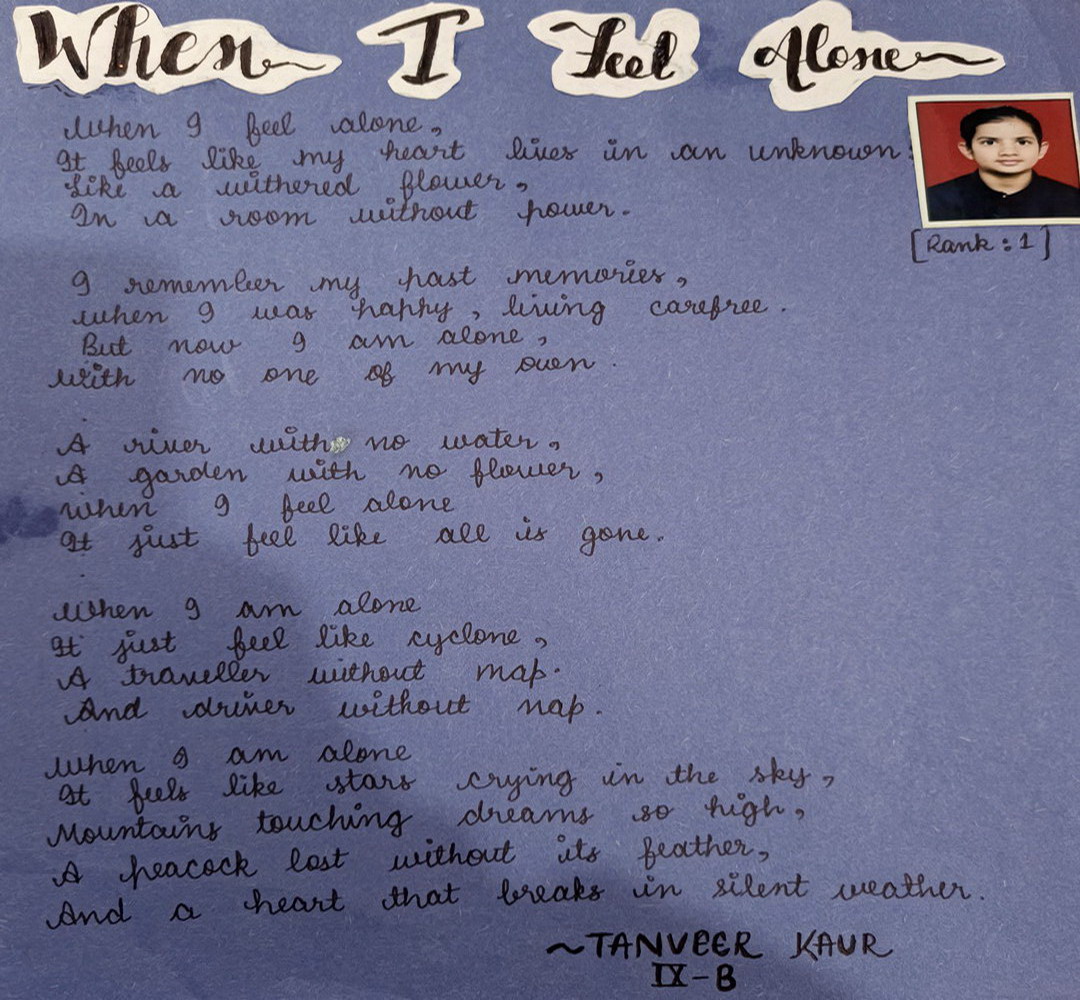 When I Feel Alone
When I feel alone,
It feels like my heart lives in an unknown
Like a withered flower,
In a room without power.
[Rank : 1]
I remember my past memories,
when I was happy, living carefree.
But now I am alone,
with no one of my own.
A river with no water,
A garden with no flower,
when I feel alone
It just feel like all is gone.
When I am alone
It just feel like cyclone,
A traveller without map.
And driver without nap.
When I am alone
It feels like stars crying in the sky,
Mountains touching dreams so high,
A peacock lost without its feather,
And a heart that breaks in silent weather.
~TANVEER KAUR
IX-B